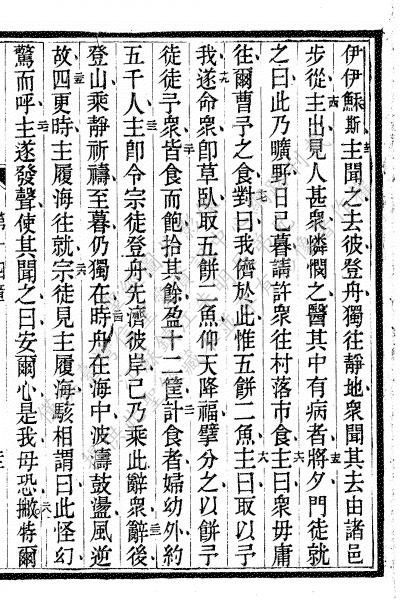 伊伊穌斯主聞之去彼登舟獨往靜地衆聞其去由諸邑
步從主出見人甚衆憐憫之醫其中有病者將夕門徒就
之曰此乃曠野日已暮請許衆往村落市食主曰衆毋庸
往爾曹予之食對曰我儕於此惟五餅二魚主曰取以予
我遂命衆卽草臥取五餅二魚仰天降福擘分之以餅予
徒徒予衆皆食而飽拾其餘盈十二筐計食者婦幼外約
五千人主卽令宗徒登舟先濟彼岸己乃乘此辭衆辭後
登山乘靜祈禱至暮仍獨在時舟在海中波濤鼓盪風逆
故四更時主履海往就宗徒見主履海駭相謂曰此怪幻
驚而呼主遂發聲使其聞之曰安爾心是我毋恐撇特爾
第十四章